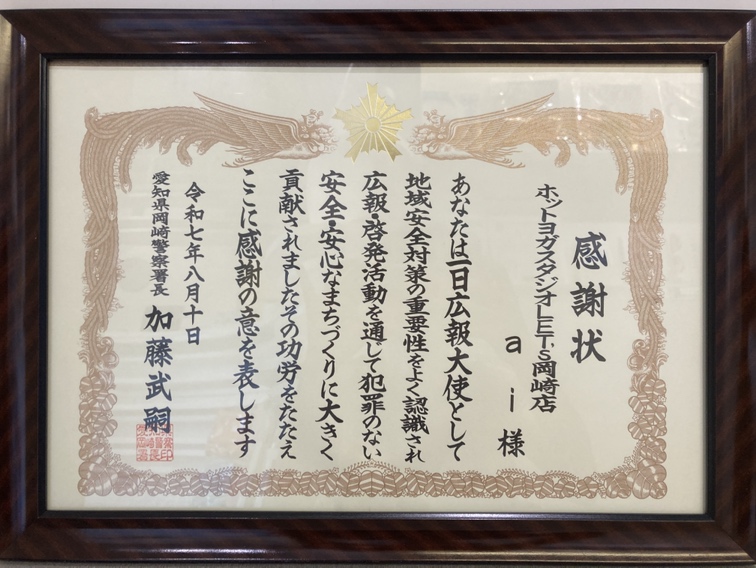 感謝状
ホットヨガスタジオLET,S岡崎店
ai様
あなたは一日広報大使として
地域安全対策の重要性をよく認識され
広報・啓発活動を通して犯罪のない
安全・安心なまちづくりに大きく
貢献されましたその功労をたたえ
ここに感謝の意を表します
令和七年八月十日
愛知県岡崎警察署長 加藤武嗣